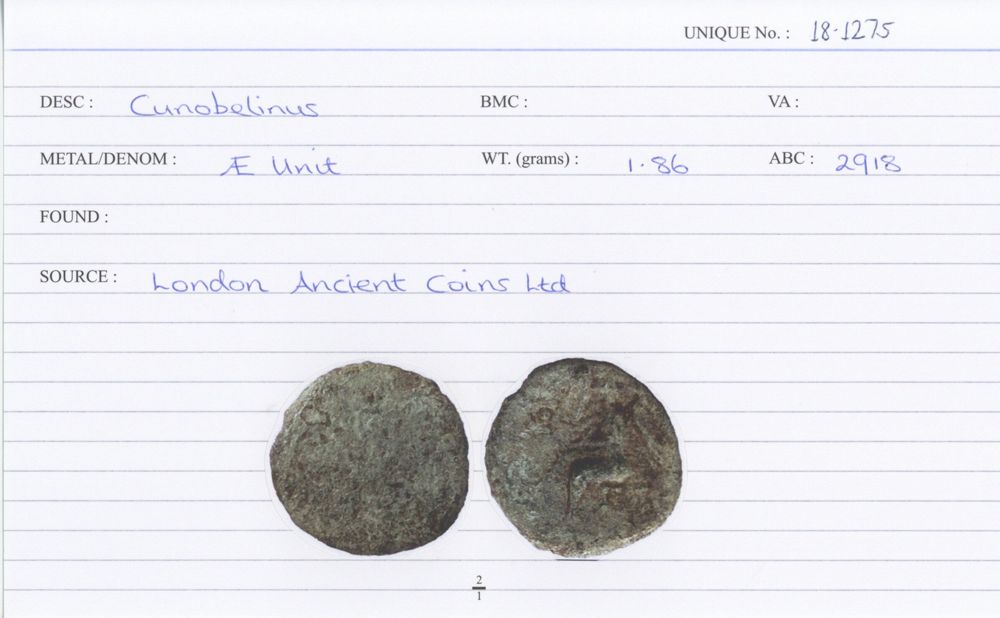 UNIQUE No. : 18.1275
DESC : Cunobelinus BMC : VA :
METAL/DENOM : Æ Unit WT. (grams) : 1.86 ABC : 2918
FOUND :
SOURCE : London Ancient Coins Ltd
2
1